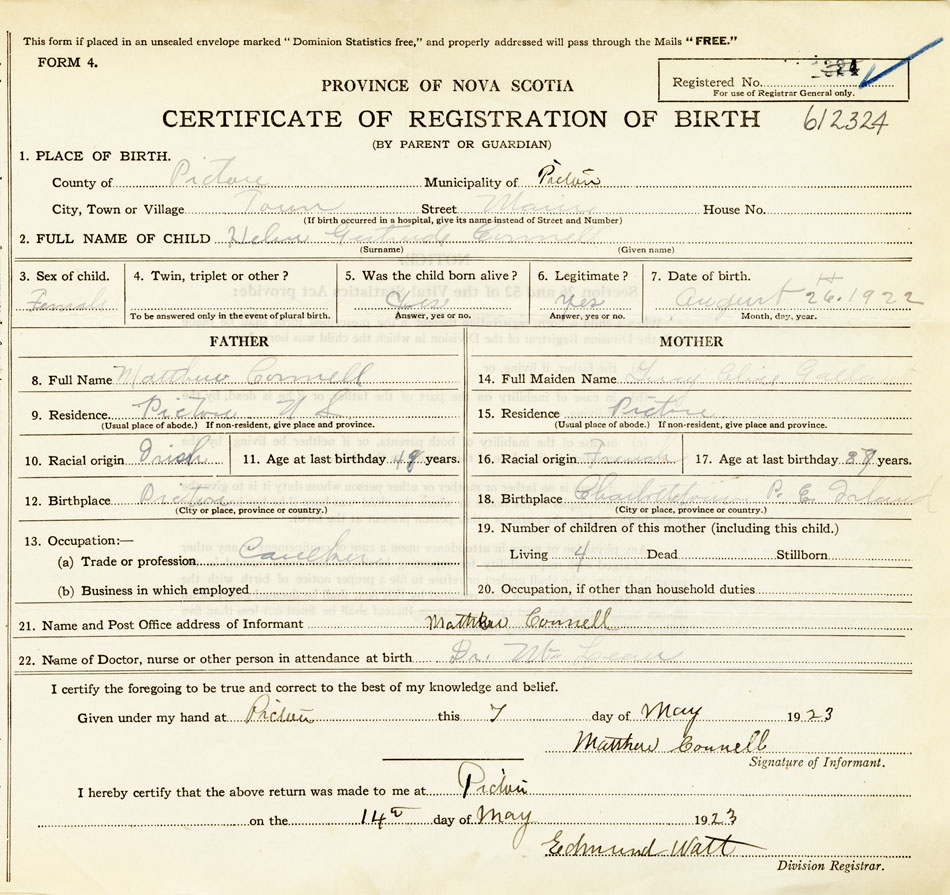 This form if placed in an unsealed envelope marked "Dominion Statistics free," and properly addressed will pass through the Mails "FREE."
FORM 4.
Registered No.
For use of Registrar General only.
PROVINCE OF NOVA SCOTIA
CERTIFICATE OF REGISTRATION OF BIRTH 612324
(BY PARENT OR GUARDIAN)
1. PLACE OF BIRTH.
County of Pictou Municipality of Pictou
City, Town or Village Town Street House No.
(If birth occurred in a hospital, give its name instead of Street and Number)
2. FULL NAME OF CHILD Helen Gertrude Connell
(Surname) (Given name)
3. Sex of child. 4. Twin, triplet or other? 5. Was the child born alive? 6. Legitimate? 7. Date of birth.
Female Yes Yes August 26th 1922
To be answered only in the event of plural birth. Answer, yes or no. Answer, yes or no. Month, day, year.
FATHER MOTHER
8. Full Name Matthew Connell 14. Full Maiden Name Alice Gallant
9. Residence Pictou N S 15. Residence Pictou
(Usual place of abode.) If non-resident, give place and province. (Usual place of abode.) If non-resident, give place and province.
10. Racial origin Irish 11. Age at last birthday 49 years. 16. Racial origin French 17. Age at last birthday years.
12. Birthplace Pictou 18. Birthplace Charlottetown P. E. Island
(City or place, province or country.) (City or place, province or country.)
13. Occupation:— 19. Number of children of this mother (including this child.)
(a) Trade or profession Living 4 Dead Stillborn
(b) Business in which employed 20. Occupation, if other than household duties
21. Name and Post Office address of Informant Matthew Connell
22. Name of Doctor, nurse or other person in attendance at birth Dr. McLean
I certify the foregoing to be true and correct to the best of my knowledge and belief.
Given under my hand at Pictou this 7 day of May 1923
Matthew Connell
Signature of Informant.
I hereby certify that the above return was made to me at Pictou
on the 14th day of May 1923
Edmund Watt
Division Registrar.